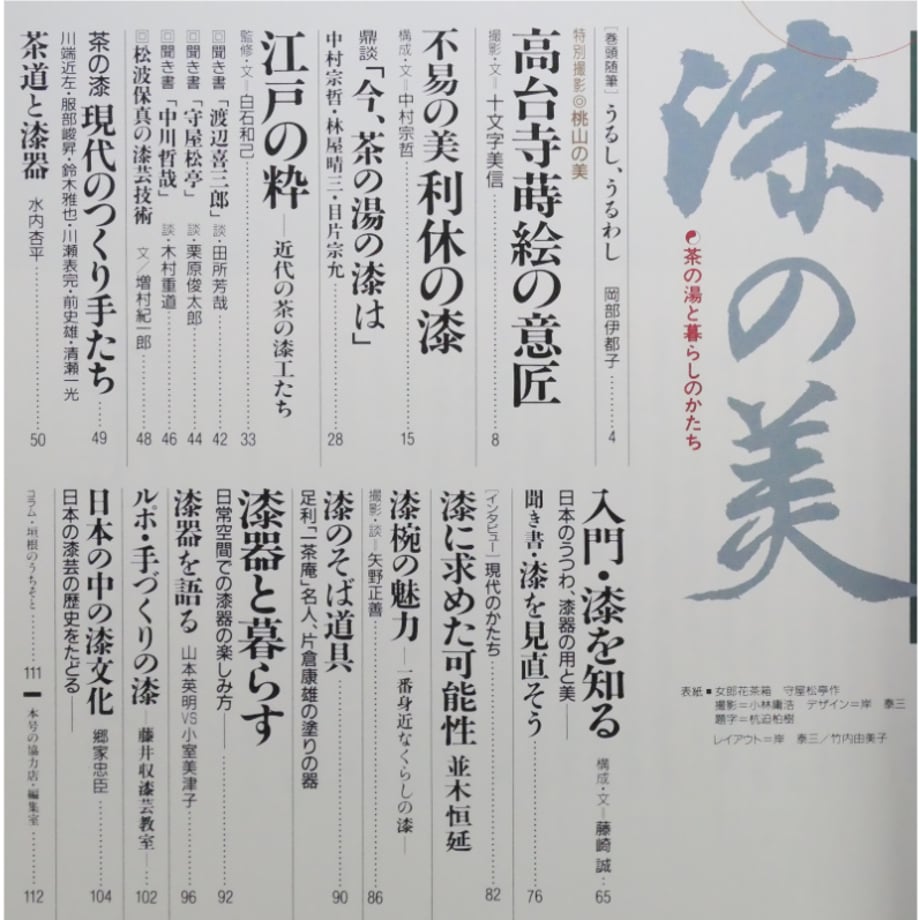 漆の美
茶の湯と暮らしのかたち
[巻頭随筆] うるし、うるわし 岡部伊都子……4
特別撮影◎桃山の美
高台寺蒔絵の意匠
撮影・文＝十文字美信……8
不易の美 利休の漆
構成・文＝中村宗哲……15
鼎談「今、茶の湯の漆は」
中村宗哲・林屋晴三・目片宗允……28
江戸の粋——近代の茶の漆工たち
監修・文＝白石和己……33
回聞き書「渡辺喜三郎」 談・田所芳哉……42
回聞き書「守屋松亭」 談・栗原俊太郎……44
回聞き書「中川哲哉」 談・木村重道……46
回松波保真の漆芸技術 文／増村紀一郎……48
茶の漆 現代のつくり手たち……49
川端近左・服部峻昇・鈴木雅也・川瀬表完・前史雄・清瀬一光
茶道と漆器 水内杏平……50
入門・漆を知る 構成・文＝藤崎 誠……65
日本のうつわ、漆器の用と美——
聞き書・漆を見直そう……76
[インタビュー] 現代のかたち……82
漆に求めた可能性 並木恒延
漆椀の魅力——一番身近なくらしの漆——
撮影・談＝矢野正善……86
漆のそば道具……90
足利「一茶庵」名人、片倉康雄の塗りの器
漆器と暮らす
日常空間での漆器の楽しみ方——……92
漆器を語る 山本英明VS小室美津子……96
ルポ・手づくりの漆——藤井収漆芸教室——……102
日本の中の漆文化 郷家忠臣……104
日本の漆芸の歴史をたどる——
コラム・垣根のうちそと……111
本号の協力店・編集室……112
表紙■女郎花茶箱 守屋松亭作
撮影＝小林庸浩 デザイン＝岸 泰三
題字＝杭迫柏樹
レイアウト＝岸 泰三／竹内由美子